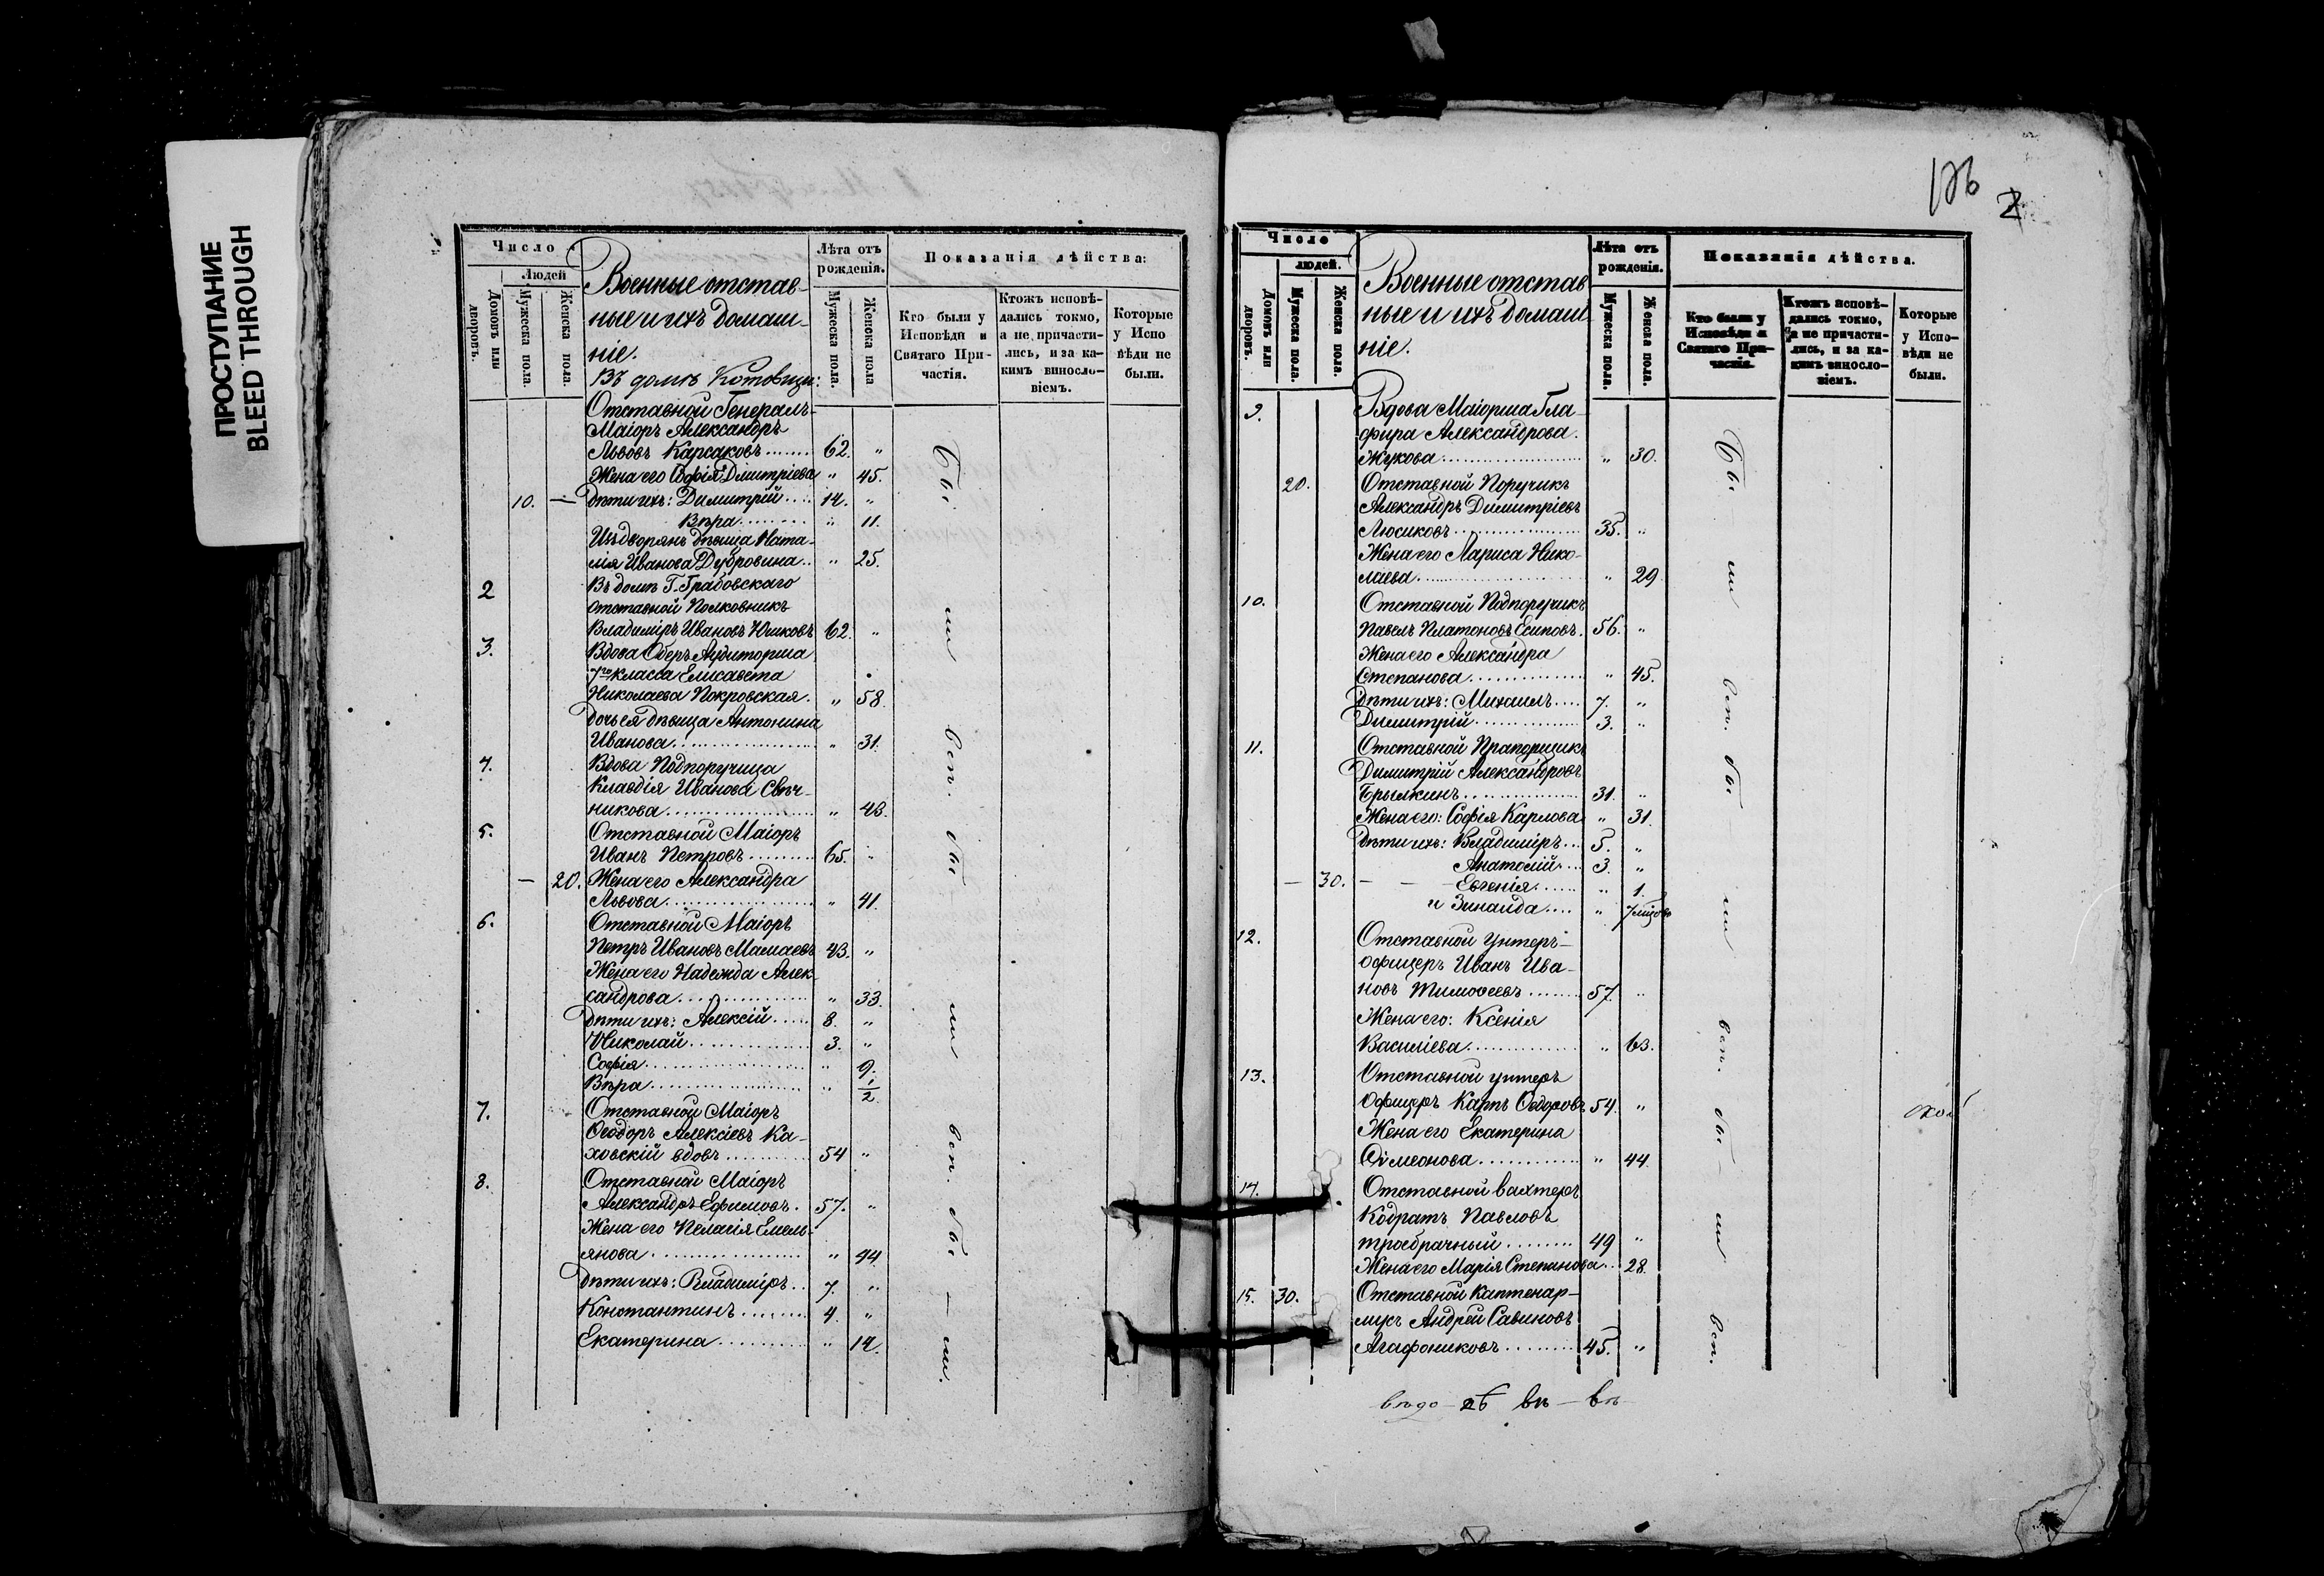 ПРОСТУПАНИЕ
BLEED THROUGH
Число
Людей
Домовъ или дворовъ.
Мужеска пола
Женска пола.
Военные отстав-
ные и ихъ домаш-
ніе.
Лѣта отъ рожденія.
Мужеска пола.
Женска пола
Показанія дѣйства:
Кто были у Исповѣди и Святаго Причастія.
Ктожъ исповѣ-
дались токмо,
а не причасти-
лись, и за ка-
кимъ виносло-
віемъ.
Которые
у Испо
вѣди не
были.
Въ домѣ Котовици:
Отставной Генералъ-
Маіоръ Александръ
Львовъ Карсаковъ 62. "
Жена его Софія Димитріева " 45.
10. — Дѣти ихъ: Димитрій 14. "
Вѣра " 11.
Изъ дворянъ дѣвица Ната-
лія Иванова Дубровина " 25.
2 Въ домѣ Г. Грабовскаго
отставной Полковникъ
Владиміръ Ивановъ Юшковъ 62. "
3. Вдова Оберъ Аудиторша
7го класса Елисавета
Николаева Покровская " 58.
Дочь ея дѣвица Антонина
Иванова " 31.
4. Вдова Подпоручица
Клавдія Иванова Свѣч-
никова " 43.
5. Отставной Маіоръ
Иванъ Петровъ 65. "
— 20. Жена его Александра
Львова " 41.
6. Отставной Маіоръ
Петръ Ивановъ Мамаевъ 43. "
Жена его Надежда Алек-
сандрова " 33.
Дѣти ихъ: Алексій 8. "
Николай 3. "
Софія " 9.
Вѣра " 1/2
7. Отставной Маіоръ
Ѳеодоръ Алексіевъ Ка-
ховскій вдовъ 54 "
8. Отставной Маіоръ
Александръ Ефимовъ 57. "
Жена его Пелагія Емель-
янова " 44
Дѣти ихъ: Владиміръ 7. "
Константинъ 4. "
Екатерина " 14.
Бы — ли вси. бы — ли вси. бы — ли.
126
2
Число
людей.
Домовъ или дворовъ.
Мужеска пола.
Женска пола.
Военные отстав
ные и ихъ домаш
ніе.
Лѣта отъ рожденія.
Мужеска пола.
Женска пола.
Показанія дѣйства.
Кто были у
Исповѣди и
Святаго При-
частія.
Ктожъ исповѣ-
дались токмо,
а не причасти-
лись, и за ка-
кимъ винносло-
віемъ.
Которые
у Испо-
вѣди не
были.
9. Вдова Маіорша Гла-
фира Александрова
Жукова " 30.
20. Отставной Поручикъ
Александръ Димитріевъ
Люсиковъ 35. "
Жена его Лариса Нико-
лаева " 29
10. Отставной Подпоручикъ
Павелъ Платоновъ Есиповъ. 56. "
Жена его Александра
Степанова " 45.
Дѣти ихъ: Михаилъ 7. "
Димитрій 3. "
11. Отставной Прапорщикъ
Димитрій Александровъ
Брылкинъ 31. "
Жена его: Софія Карлова " 31.
Дѣти ихъ: Владиміръ 5. "
Анатолій 3. "
— 30. — — Евгенія " 1.
и Зинаида " 7 мѣсяцовъ
12. Отставной Унтеръ-
офицеръ Иванъ Ива-
новъ Тимоѳеевъ 57. "
Жена его: Ксенія
Василіева " 63.
13. Отставной унтеръ
Офицеръ Карпъ Ѳедоровъ 54. "
Жена его Екатерина
Симеонова " 44.
14. Отставной вахтеръ
Кодратъ Павловъ
троебрачный 49 "
Жена его Марія Степанова 28.
15. 30. Отставной Каптенар-
мусъ Андрей Савиновъ
Агафониковъ 45. "
Бы — ли вси. бы — ли вси. бы — ли вси.